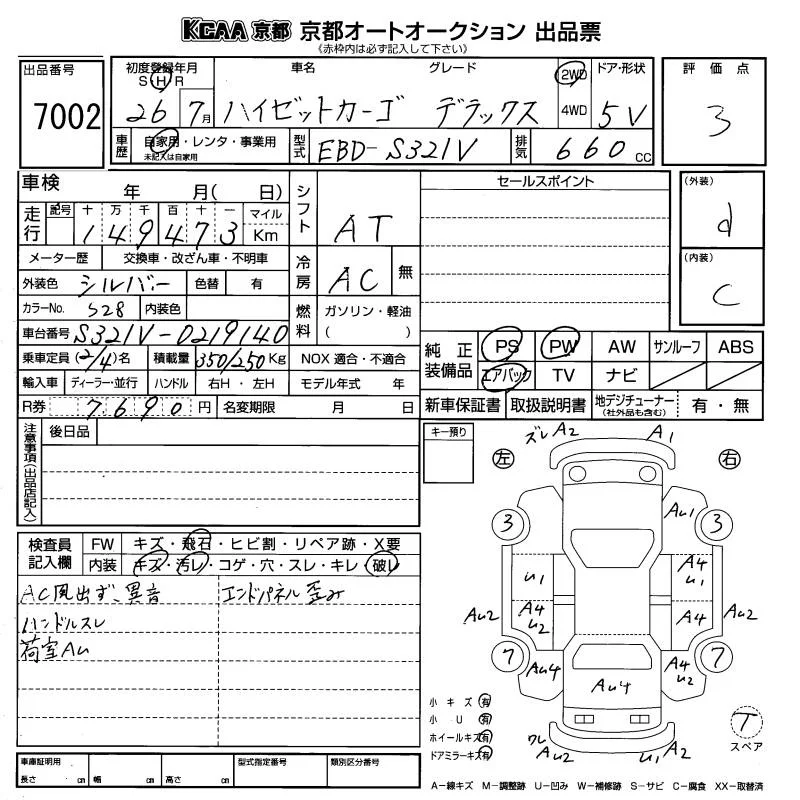 KCAA 京都 京都オートオークション 出品票
《赤枠内は必ず記入して下さい》
出品番号
7002
初度登録年月
S H R
26 7月
車名 グレード
ハイゼットカーゴ デラックス
2WD
4WD
ドア・形状
5V
評価点
3
車歴
自家用・レンタ・事業用
未記入は自家用
型式
EBD-S321V
排気
660cc
車検 年 月( 日)
走行 記号 十 万 千 百 十 一 マイル
149473 Km
メーター歴 交換車・改ざん車・不明車
外装色 シルバー 色替 有
カラーNo. S28 内装色
車台番号 S321V-0219140
乗車定員 (2/4)名 積載量 350/250Kg
輸入車 ディーラー・並行 ハンドル 右H・左H モデル年式 年
R券 7,690円 名変期限 月 日
シフト AT
冷房 AC 無
燃料 ガソリン・軽油
( )
NOX 適合・不適合
セールスポイント
(外装)
d
(内装)
C
純正装備品
PS PW AW サンルーフ ABS
エアバック TV ナビ
新車保証書 取扱説明書 地デジチューナー
(社外品も含む)
有・無
注意事項(出品店記入)
後日品
キー預り
検査員記入欄
FW キズ・飛石・ヒビ割・リペア跡・X要
内装 キズ・汚レ・コゲ・穴・スレ・キレ・破レ
AC風出ず、異音 エンドパネル歪み
ハンドルスレ
荷室AU
ズレA2 A1
左 右
3 AU1 3
U1 A4 U1
AU2 A4 U2 A4 AU2
7 AU4 A4 U2 7
AU4
小キズ 有
小U 有
ホイールキズ 有
ドアミラーキズ 有
ワレ AU2 U1 A2
T
スペア
車庫証明用 型式指定番号 類別区分番号
長さ cm 幅 cm 高さ cm
A−線キズ M−調整跡 U−凹み W−補修跡 S−サビ C−腐食 XX−取替済